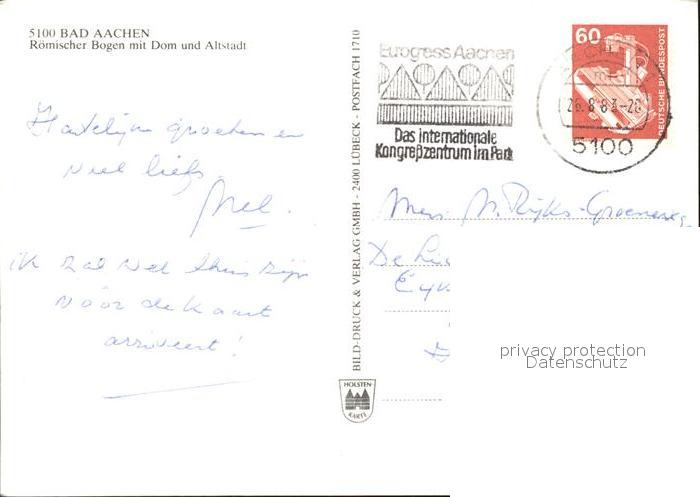 5100 BAD AACHEN
Römischer Bogen mit Dom und Altstadt
Hartelijke groeten en
veel liefs
Mel.
ik zal wel thuis zijn
vóór de kaart
arriveert!
BILD-DRUCK & VERLAG GMBH - 2400 LÜBECK - POSTFACH 1710
HOLSTEN-
KARTE
Eurogress Aachen
Das internationale
Kongreßzentrum im Park
60
DEUTSCHE BUNDESPOST
26.8.83-20
5100
Mevr. M. Rijks-
De
privacy protection
Datenschutz